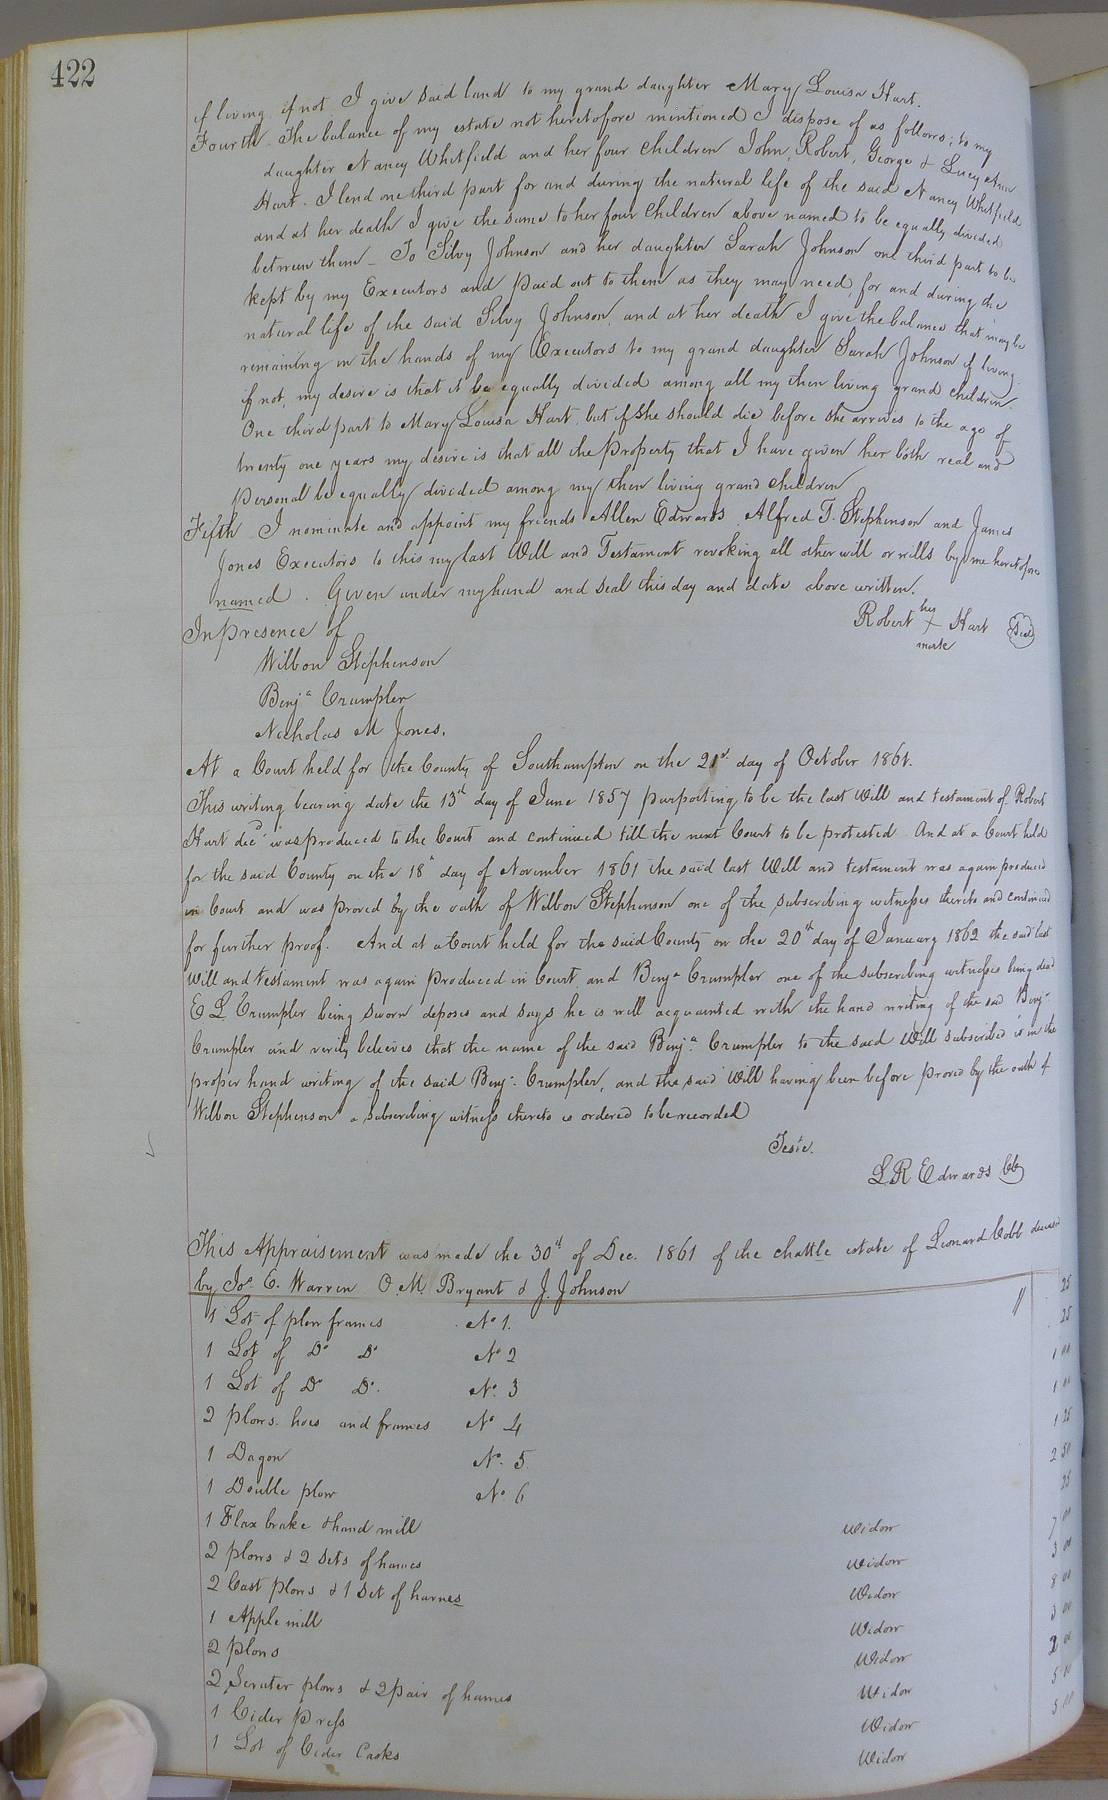 422
if living, if not I give said land to my grand daughter Mary Louisa Hart.
Fourth. The balance of my estate not heretofore mentioned I dispose of as follows; to my
daughter Nancy Whitfield and her four children John, Robert, George & Lucy Ann
Hart. I lend one third part for and during the natural life of the said Nancy Whitfield
and at her death I give the same to her four children above named to be equally divided
between them - To Silvy Johnson and her daughter Sarah Johnson one third part to be
kept by my Executors and paid out to them as they may need, for and during the
natural life of the said Silvy Johnson, and at her death I give the balance that may be
remaining in the hands of my Executors to my grand daughter Sarah Johnson if living
if not, my desire is that it be equally divided among all my then living grand children.
One third part to Mary Louisa Hart, but if she should die before she arrives to the age of
twenty one years my desire is that all the property that I have given her both real and
personal be equally divided among my then living grand children
Fifth I nominate and appoint my friends Allen Edwards, Alfred T. Stephenson and James
Jones Executors to this my last Will and Testament revoking all other will or wills by me heretofore
named. Given under my hand and seal this day and date above written.
In presence of
Robert his X mark Hart Seal
Wilbon Stephenson
Benja Crumpler
Nicholas M Jones.
At a Court held for the County of Southampton on the 21st day of October 1861.
This writing bearing date the 13th day of June 1857 purporting to be the last Will and testament of Robert
Hart decd was produced to the Court and continued till the next Court to be protested And at a Court held
for the said County on the 18th day of November 1861 the said last Will and testament was again produced
in Court and was proved by the oath of Wilbon Stephenson one of the subscribing witnesses thereto and continued
for further proof. And at a Court held for the said County on the 20th day of January 1862 the said last
Will and testament was again produced in Court and Benja Crumpler one of the subscribing witnesses being dead
E L Crumpler being sworn deposes and says he is well acquainted with the hand writing of the said Benja
Crumpler and verily believes that the name of the said Benja Crumpler to the said Will subscribed is in the
proper hand writing of the said Benja Crumpler, and the said Will having been before proved by the oath of
Wilbon Stephenson a subscribing witness thereto is ordered to be recorded
Teste.
L R Edwards CC
This Appraisement was made the 30th of Dec. 1861 of the chattle estate of Leonard Cobb deceased
by Jos. E. Warren O. M. Bryant & J. Johnson
1 Lot of plow frames No 1. 25
1 Lot of Do Do No 2 25
1 Lot of Do Do. No. 3 1 00
2 plows hoes and frames No 4 1 00
1 Dagon No. 5 1 25
1 Double plow No. 6 2 50
1 Flax brake & hand mill Widow 25
2 plows & 2 sets of hames Widow 7 00
2 Cast plows & 1 set of hames Widow 3 00
1 Apple mill Widow 8 00
2 plows Widow 3 00
2 Scruter plows & 2 pair of hames Widow 2 00
1 Cider Press Widow 5 00
1 Lot of Cider Casks Widow 5 00